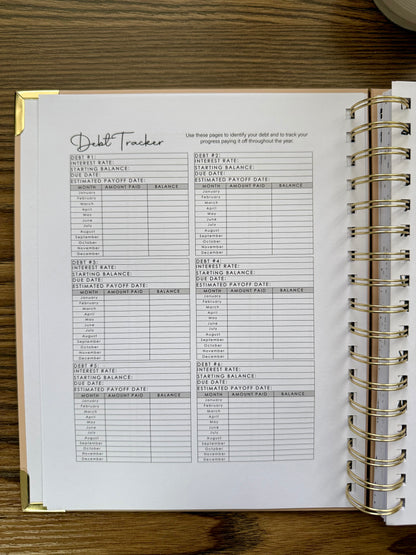 Debt Tracker
Use these pages to identify your debt and to track your
progress paying it off throughout the year.
DEBT #1:
INTEREST RATE:
STARTING BALANCE:
DUE DATE:
ESTIMATED PAYOFF DATE:
MONTH AMOUNT PAID BALANCE
January
February
March
April
May
June
July
August
September
October
November
December
DEBT #2:
INTEREST RATE:
STARTING BALANCE:
DUE DATE:
ESTIMATED PAYOFF DATE:
MONTH AMOUNT PAID BALANCE
January
February
March
April
May
June
July
August
September
October
November
December
DEBT #3:
INTEREST RATE:
STARTING BALANCE:
DUE DATE:
ESTIMATED PAYOFF DATE:
MONTH AMOUNT PAID BALANCE
January
February
March
April
May
June
July
August
September
October
November
December
DEBT #4:
INTEREST RATE:
STARTING BALANCE:
DUE DATE:
ESTIMATED PAYOFF DATE:
MONTH AMOUNT PAID BALANCE
January
February
March
April
May
June
July
August
September
October
November
December
DEBT #5:
INTEREST RATE:
STARTING BALANCE:
DUE DATE:
ESTIMATED PAYOFF DATE:
MONTH AMOUNT PAID BALANCE
January
February
March
April
May
June
July
August
September
October
November
December
DEBT #6:
INTEREST RATE:
STARTING BALANCE:
DUE DATE:
ESTIMATED PAYOFF DATE:
MONTH AMOUNT PAID BALANCE
January
February
March
April
May
June
July
August
September
October
November
December